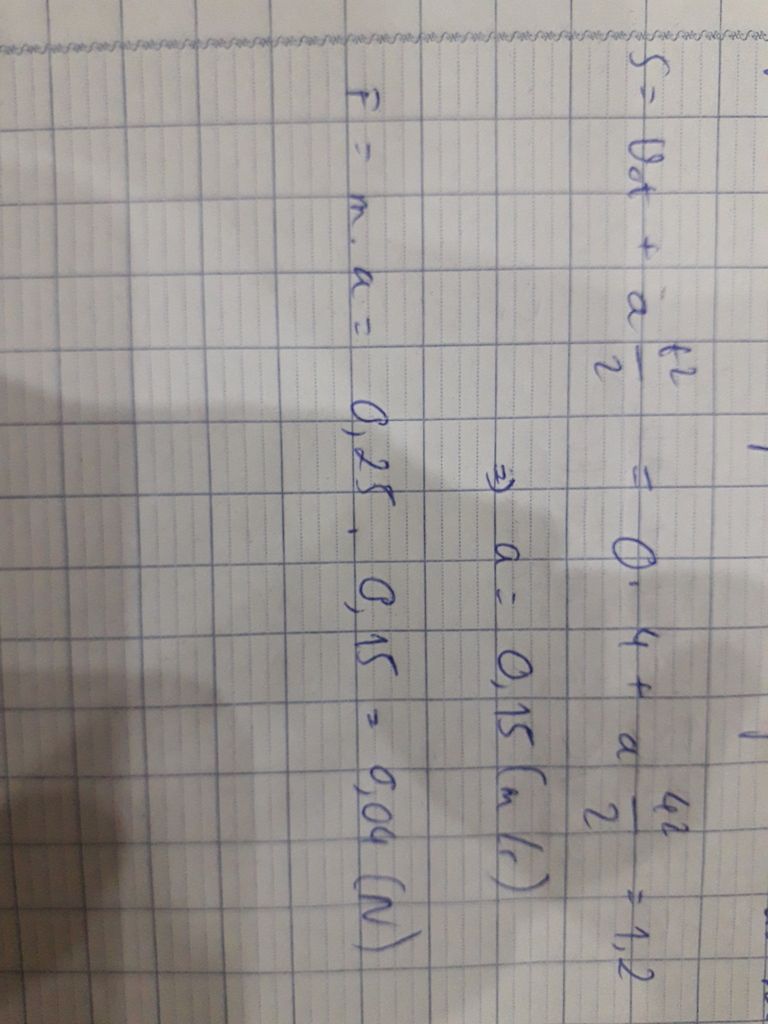 S = v₀t + a t²/2 = 0.4 + a 4²/2 = 1,2
⇒ a = 0,15 (m/s)
F = m.a = 0,25 . 0,15 = 0,04 (N)